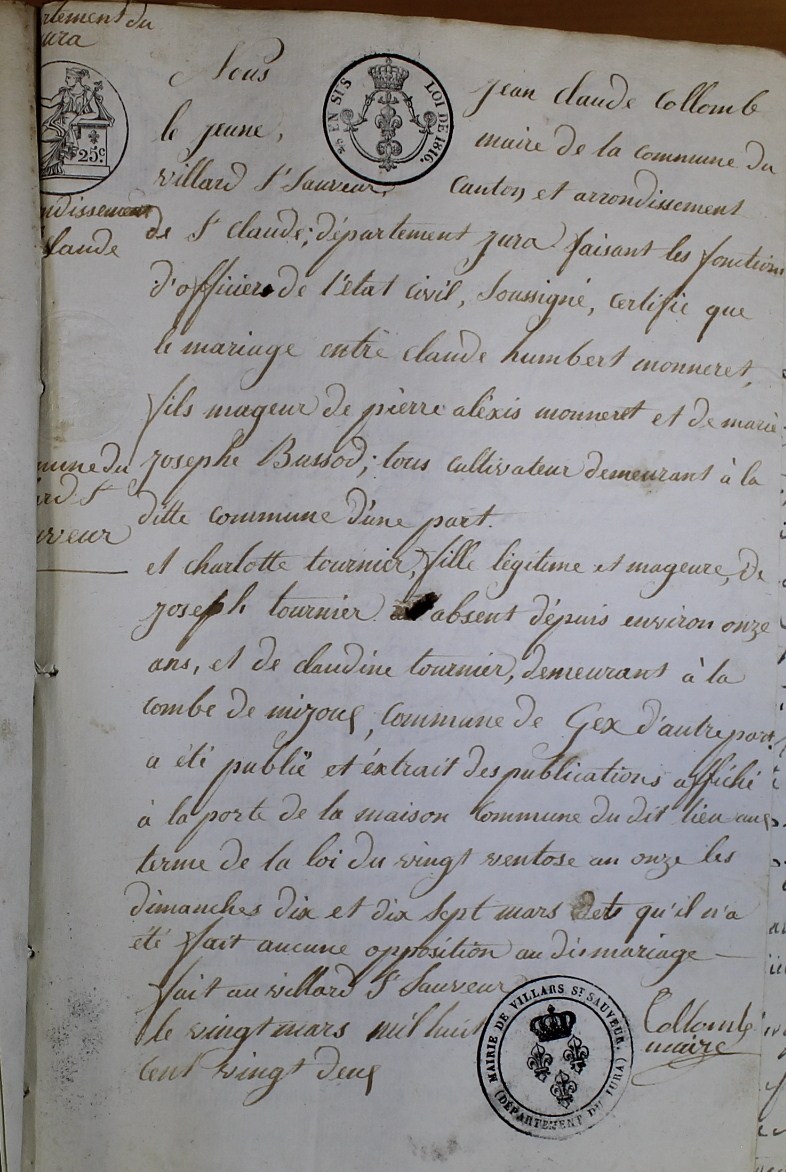 rtement du
ura
25ᶜ
EN SUS LOI DE 1816.
ndissement
laude
mune du
rd St
uveur
Nous jean claude Collomb
le jeune, maire de la commune du
villard St Sauveur, canton et arrondissement
de St claude; département jura faisant les fonctions
d'officier de l'état civil, soussigné, certifie que
le mariage entre claude humbert monneret,
fils mageur de pierre aléxis monneret et de marie
josephe Bussod; tous cultivateur demeurant à la
ditte commune d'une part.
et charlotte tournier, fille légitime et mageure, de
joseph tournier absent dépuis environ onze
ans, et de claudine tournier, demeurant à la
combe de mijoux, commune de Gex d'autre part
a été publié et éxtrait des publications affiché
à la porte de la maison commune du dit lieu aux
terme de la loi du vingt ventose an onze les
dimanches dix et dix sept mars et qu'il n'a
été fait aucune opposition au dit mariage
fait au villard St Sauveur
le vingt mars mil huit
cent vingt deux
Collomb
maire
MAIRIE DE VILLARS ST SAUVEUR.
(DÉPARTEMENT DU JURA)